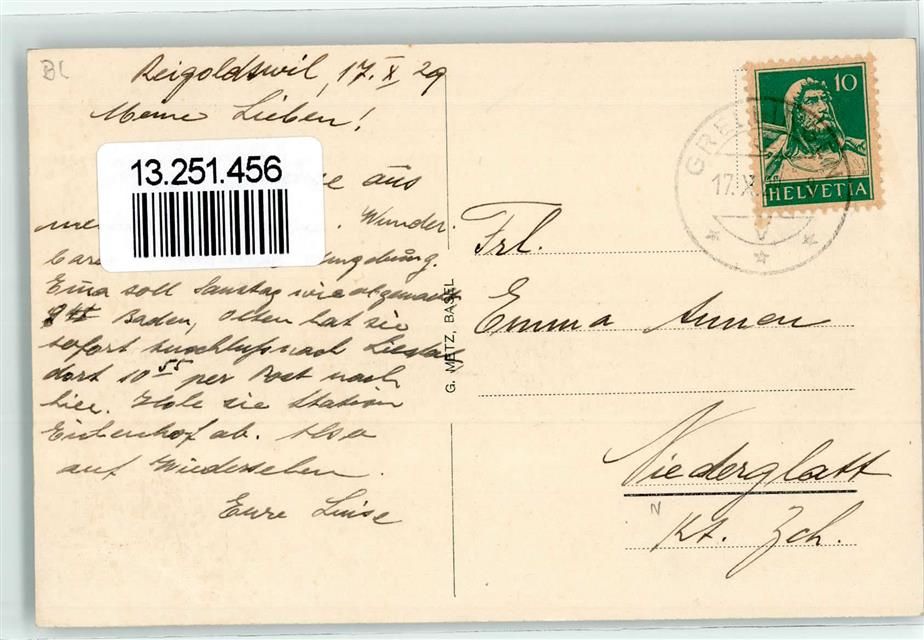 BL
Reigoldswil, 17. X 29
Meine Lieben!
13.251.456
aus
Wunder
bare Umgebung.
Emma soll Samstag wie abgemacht
Baden, Olten hat sie
sofort Anschluss nach Liestal
dort 10 55 per Post nach
hier. Hole sie Station
ab. Also
auf Wiedersehen.
Eure Luise
G. METZ, BASEL
10
HELVETIA
17. X.
Frl.
Emma Ammen
Niederglatt
N
Kt. Zch.